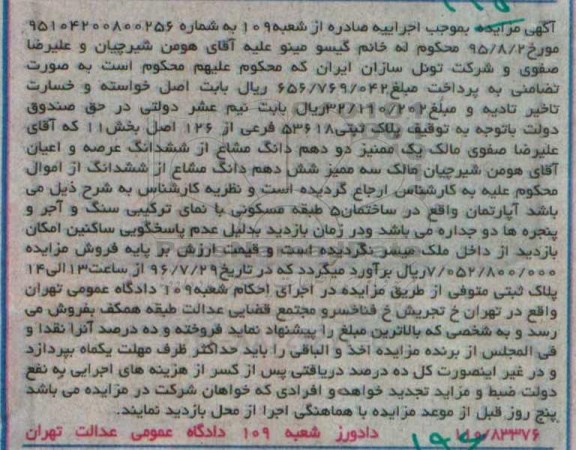 آگهی مزایده بموجب اجراییه صادره از شعبه۱۰۹ به شماره ۹۵۱۰۴۲۰۰۸۰۰۲۵۶
مورخ۹۵/۸/۲ محکوم له خانم گیسو مینو علیه آقای هومن شیرچیان و علیرضا
صفوی و شرکت تونل سازان ایران که محکوم علیهم محکوم است به صورت
تضامنی به پرداخت مبلغ۶۵۶/۷۶۹/۰۴۲ ریال بابت اصل خواسته و خسارت
تاخیر تادیه و مبلغ۳۲/۱۱۰/۲۰۲ریال بابت نیم عشر دولتی در حق صندوق
دولت باتوجه به توقیف پلاک ثبتی۵۳۶۱۸ فرعی از ۱۲۶ اصل بخش۱۱ که آقای
علیرضا صفوی مالک یک ممیز دو دهم دانگ مشاع از ششدانگ عرصه و اعیان
آقای هومن شیرچیان مالک سه ممیز شش دهم دانگ مشاع از ششدانگ از اموال
محکوم علیه به کارشناس ارجاع گردیده است و نظریه کارشناس به شرح ذیل می
باشد آپارتمان واقع در ساختمان۵ طبقه مسکونی با نمای ترکیبی سنگ و آجر و
پنجره ها دو جداره می باشد ودر زمان بازدید بدلیل عدم پاسخگویی ساکنین امکان
بازدید از داخل ملک میسر نگردیده است و قیمت ارزش بر پایه فروش مزایده
۷/۰۵۲/۸۰۰/۰۰۰ریال برآورد میگردد که در تاریخ۹۶/۷/۲۹ از ساعت۱۳الی۱۴
پلاک ثبتی متوفی از طریق مزایده در اجرای احکام شعبه۱۰۹ دادگاه عمومی تهران
واقع در تهران خ تجریش خ فناخسرو مجتمع قضایی عدالت طبقه همکف بفروش می
رسد و به شخصی که بالاترین مبلغ را پیشنهاد نماید فروخته و ده درصد آنرا نقدا و
فی المجلس از برنده مزایده اخذ و الباقی را باید حداکثر ظرف مهلت یکماه بپردازد
و در غیر اینصورت کل ده درصد دریافتی پس از کسر از هزینه های اجرایی به نفع
دولت ضبط و مزاید تجدید خواهد و افرادی که خواهان شرکت در مزایده می باشد
پنج روز قبل از موعد مزایده با هماهنگی اجرا از محل بازدید نمایند.
۱۱۰/۸۳۳۷۶ دادورز شعبه ۱۰۹ دادگاه عمومی عدالت تهران